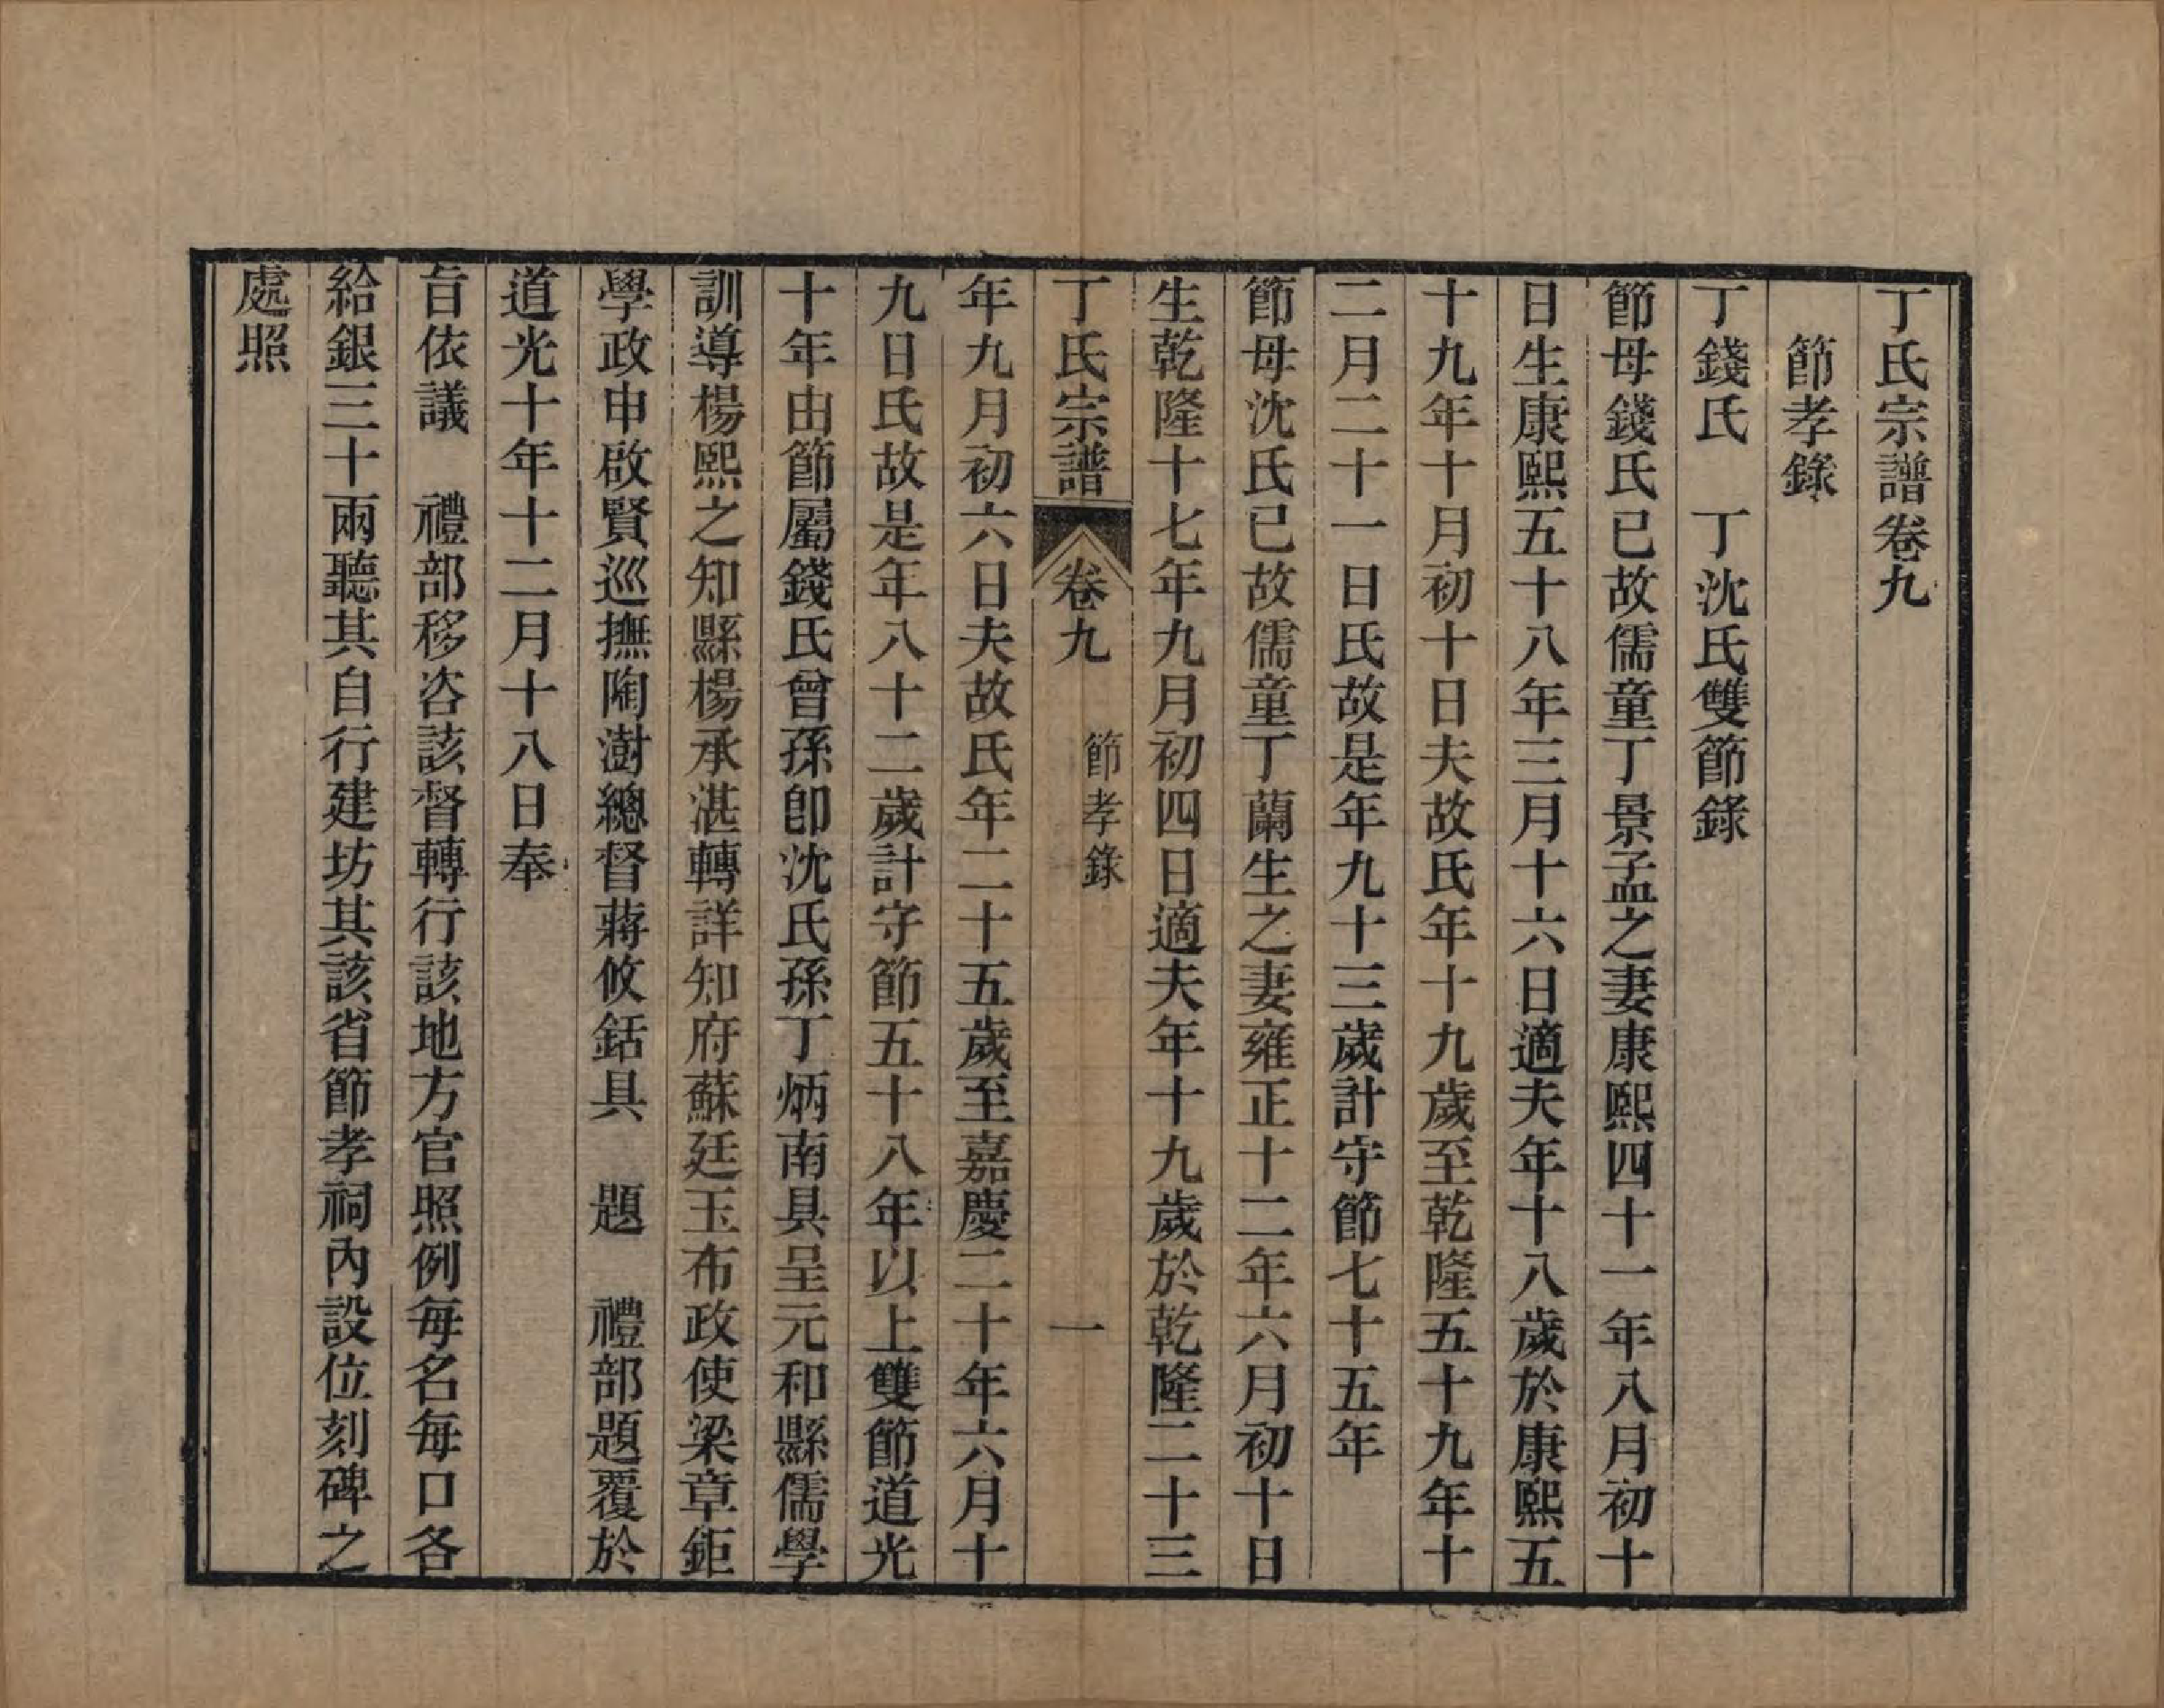 丁氏宗譜卷九
節孝錄
丁錢氏　丁沈氏雙節錄
節母錢氏已故儒童丁景孟之妻康熙四十一年八月初十
日生康熙五十八年三月十六日適夫年十八歲於康熙五
十九年十月初十日夫故氏年十九歲至乾隆五十九年十
二月二十一日氏故是年九十三歲計守節七十五年
節母沈氏已故儒童丁蘭生之妻雍正十二年六月初十日
生乾隆十七年九月初四日適夫年十九歲於乾隆二十三
丁氏宗譜　卷九　節孝錄　一
年九月初六日夫故氏年二十五歲至嘉慶二十年六月十
九日氏故是年八十二歲計守節五十八年以上雙節道光
十年由節屬錢氏曾孫卽沈氏孫丁炳南具呈元和縣儒學
訓導楊熙之知縣楊承湛轉詳知府蘇廷玉布政使梁章鉅
學政申啟賢巡撫陶澍總督蔣攸銛具　題　禮部題覆於
道光十年十二月十八日奉
旨依議　禮部移咨該督轉行該地方官照例每名每口各
給銀三十兩聽其自行建坊其該省節孝祠內設位刻碑之
處照